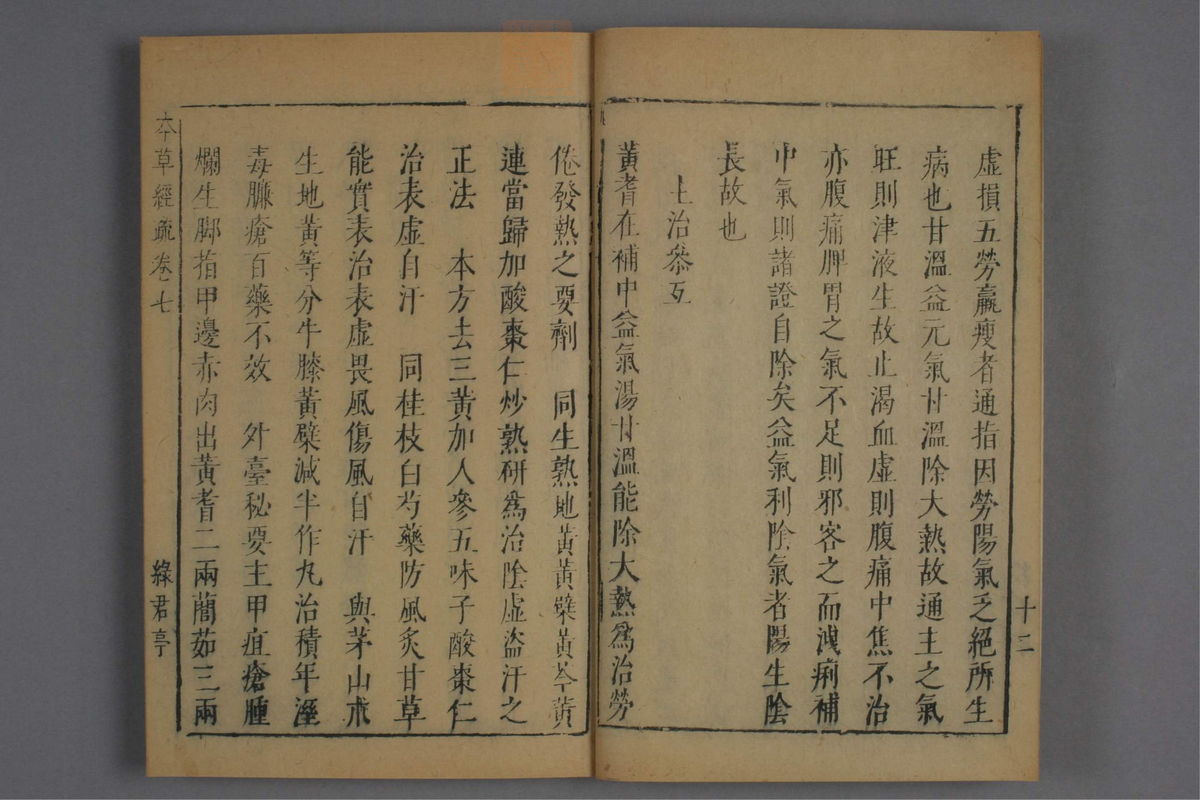 虛損五勞羸瘦者通指因勞陽氣乏絕所生
病也甘溫益元氣甘溫除大熱故通主之氣
旺則津液生故止渴血虛則腹痛中焦不治
亦腹痛脾胃之氣不足則邪客之而洩痢補
中氣則諸證自除矣益氣利陰氣者陽生陰
長故也
主治叅互
黃耆在補中益氣湯甘溫能除大熱爲治勞
十二
倦發熱之要劑　同生熟地黃黃檗黃芩黃
連當歸加酸棗仁炒熟研爲治陰虛盜汗之
正法　本方去三黃加人參五味子酸棗仁
治表虛自汗　同桂枝白芍藥防風炙甘草
能實表治表虛畏風傷風自汗　與茅山朮
生地黃等分牛膝黃檗減半作丸治積年溼
毒臁瘡百藥不效　外臺秘要主甲疽瘡腫
爛生脚指甲邊赤肉出黃耆二兩䕡茹三兩
本草經疏卷七
綠君亭